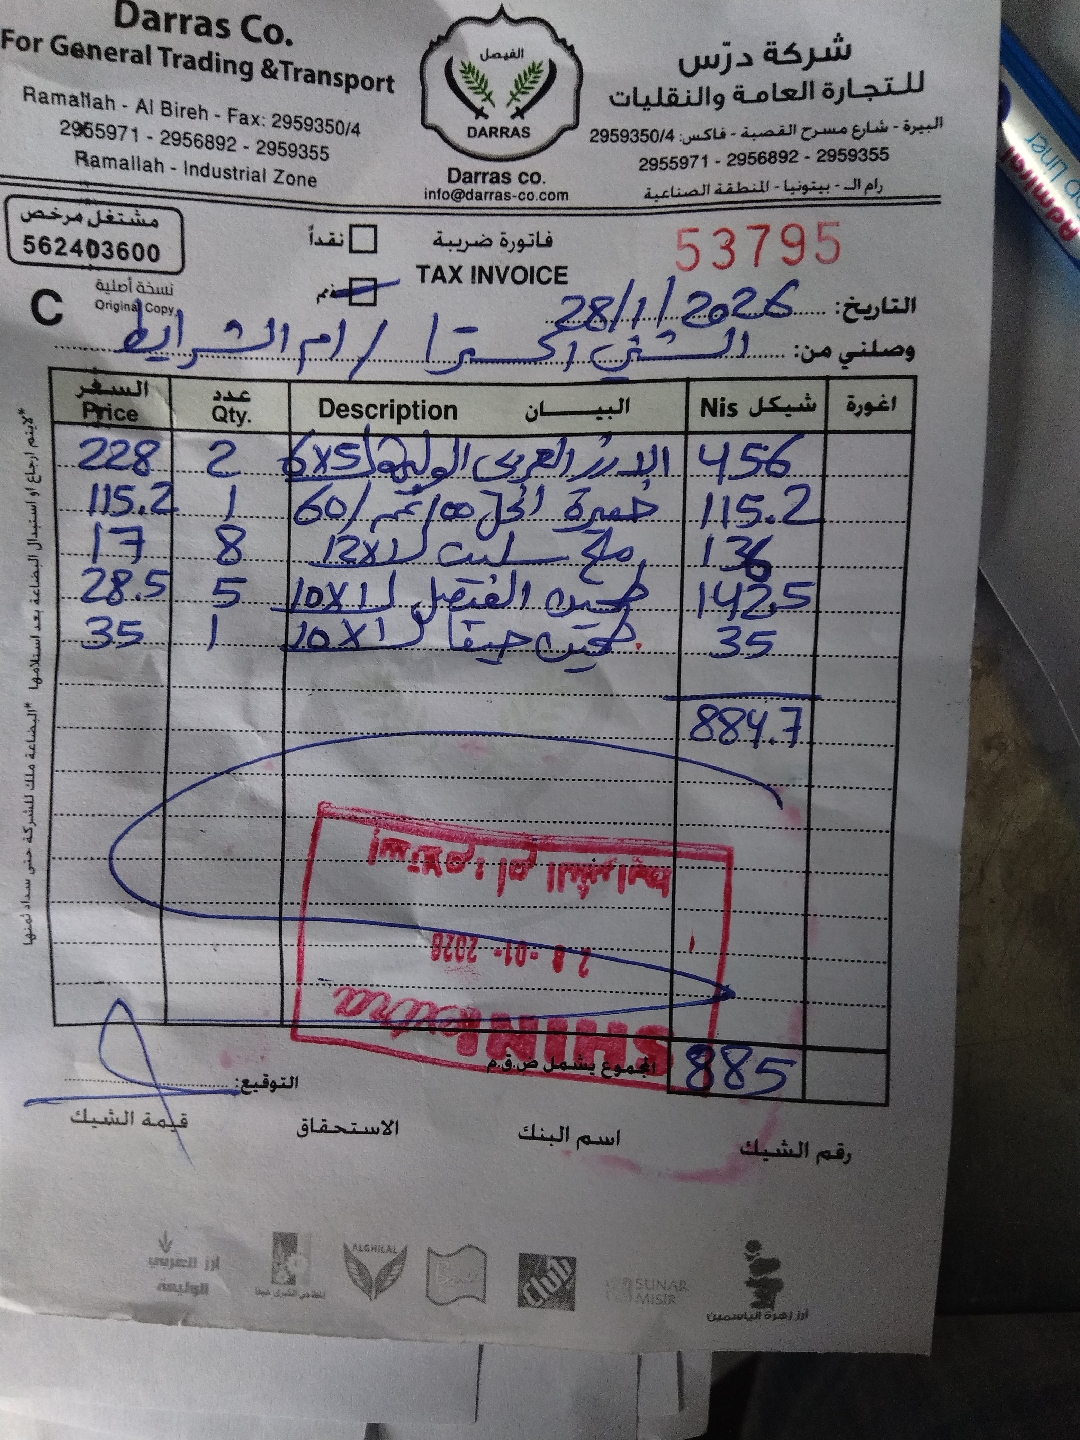 Darras Co.
For General Trading &Transport
Ramallah - Al Bireh - Fax: 2959350/4
2955971 - 2956892 - 2959355
Ramallah - Industrial Zone
الفيصل
DARRAS
Darras co.
info@darras-co.com
شركة درّس
للتجارة العامة والنقليات
البيرة - شارع مسرح القصبة - فاكس: 2959350/4
2955971 - 2956892 - 2959355
رام الـ - بيتونيا - المنطقة الصناعية
مشتغل مرخص
562403600
نسخة أصلية
Original Copy
C
نقداً
فاتورة ضريبة
TAX INVOICE
53795
التاريخ: 28/1/2026
وصلني من: الشني اكسترا / ام الشرايط
السعر Price
عدد Qty.
Description البيـــــان
Nis شيكل
اغورة
228 2 الارز العربي الوليمة 6x5 456
115.2 1 خميرة 60/ 115.2
17 8 ملح سلت 12x1 136
28.5 5 طحين الفيصل 10x1 142.5
35 1 طحين حيفا 10x1 35
884.7
استلام: ام الشرايط
28 -01- 2026
SHINI extra
المجموع يشمل ض.ق.م 885
التوقيع:
قيمة الشيك
الاستحقاق
اسم البنك
رقم الشيك
*لايتم ارجاع او استبدال البضاعة بعد استلامها *البضاعة ملك للشركة حتى سداد ثمنها
أرز العربي
الوليمة
ALGHILAL
SUNAR
MISIR
أرز زهرة الياسمين
Admiral
Liner